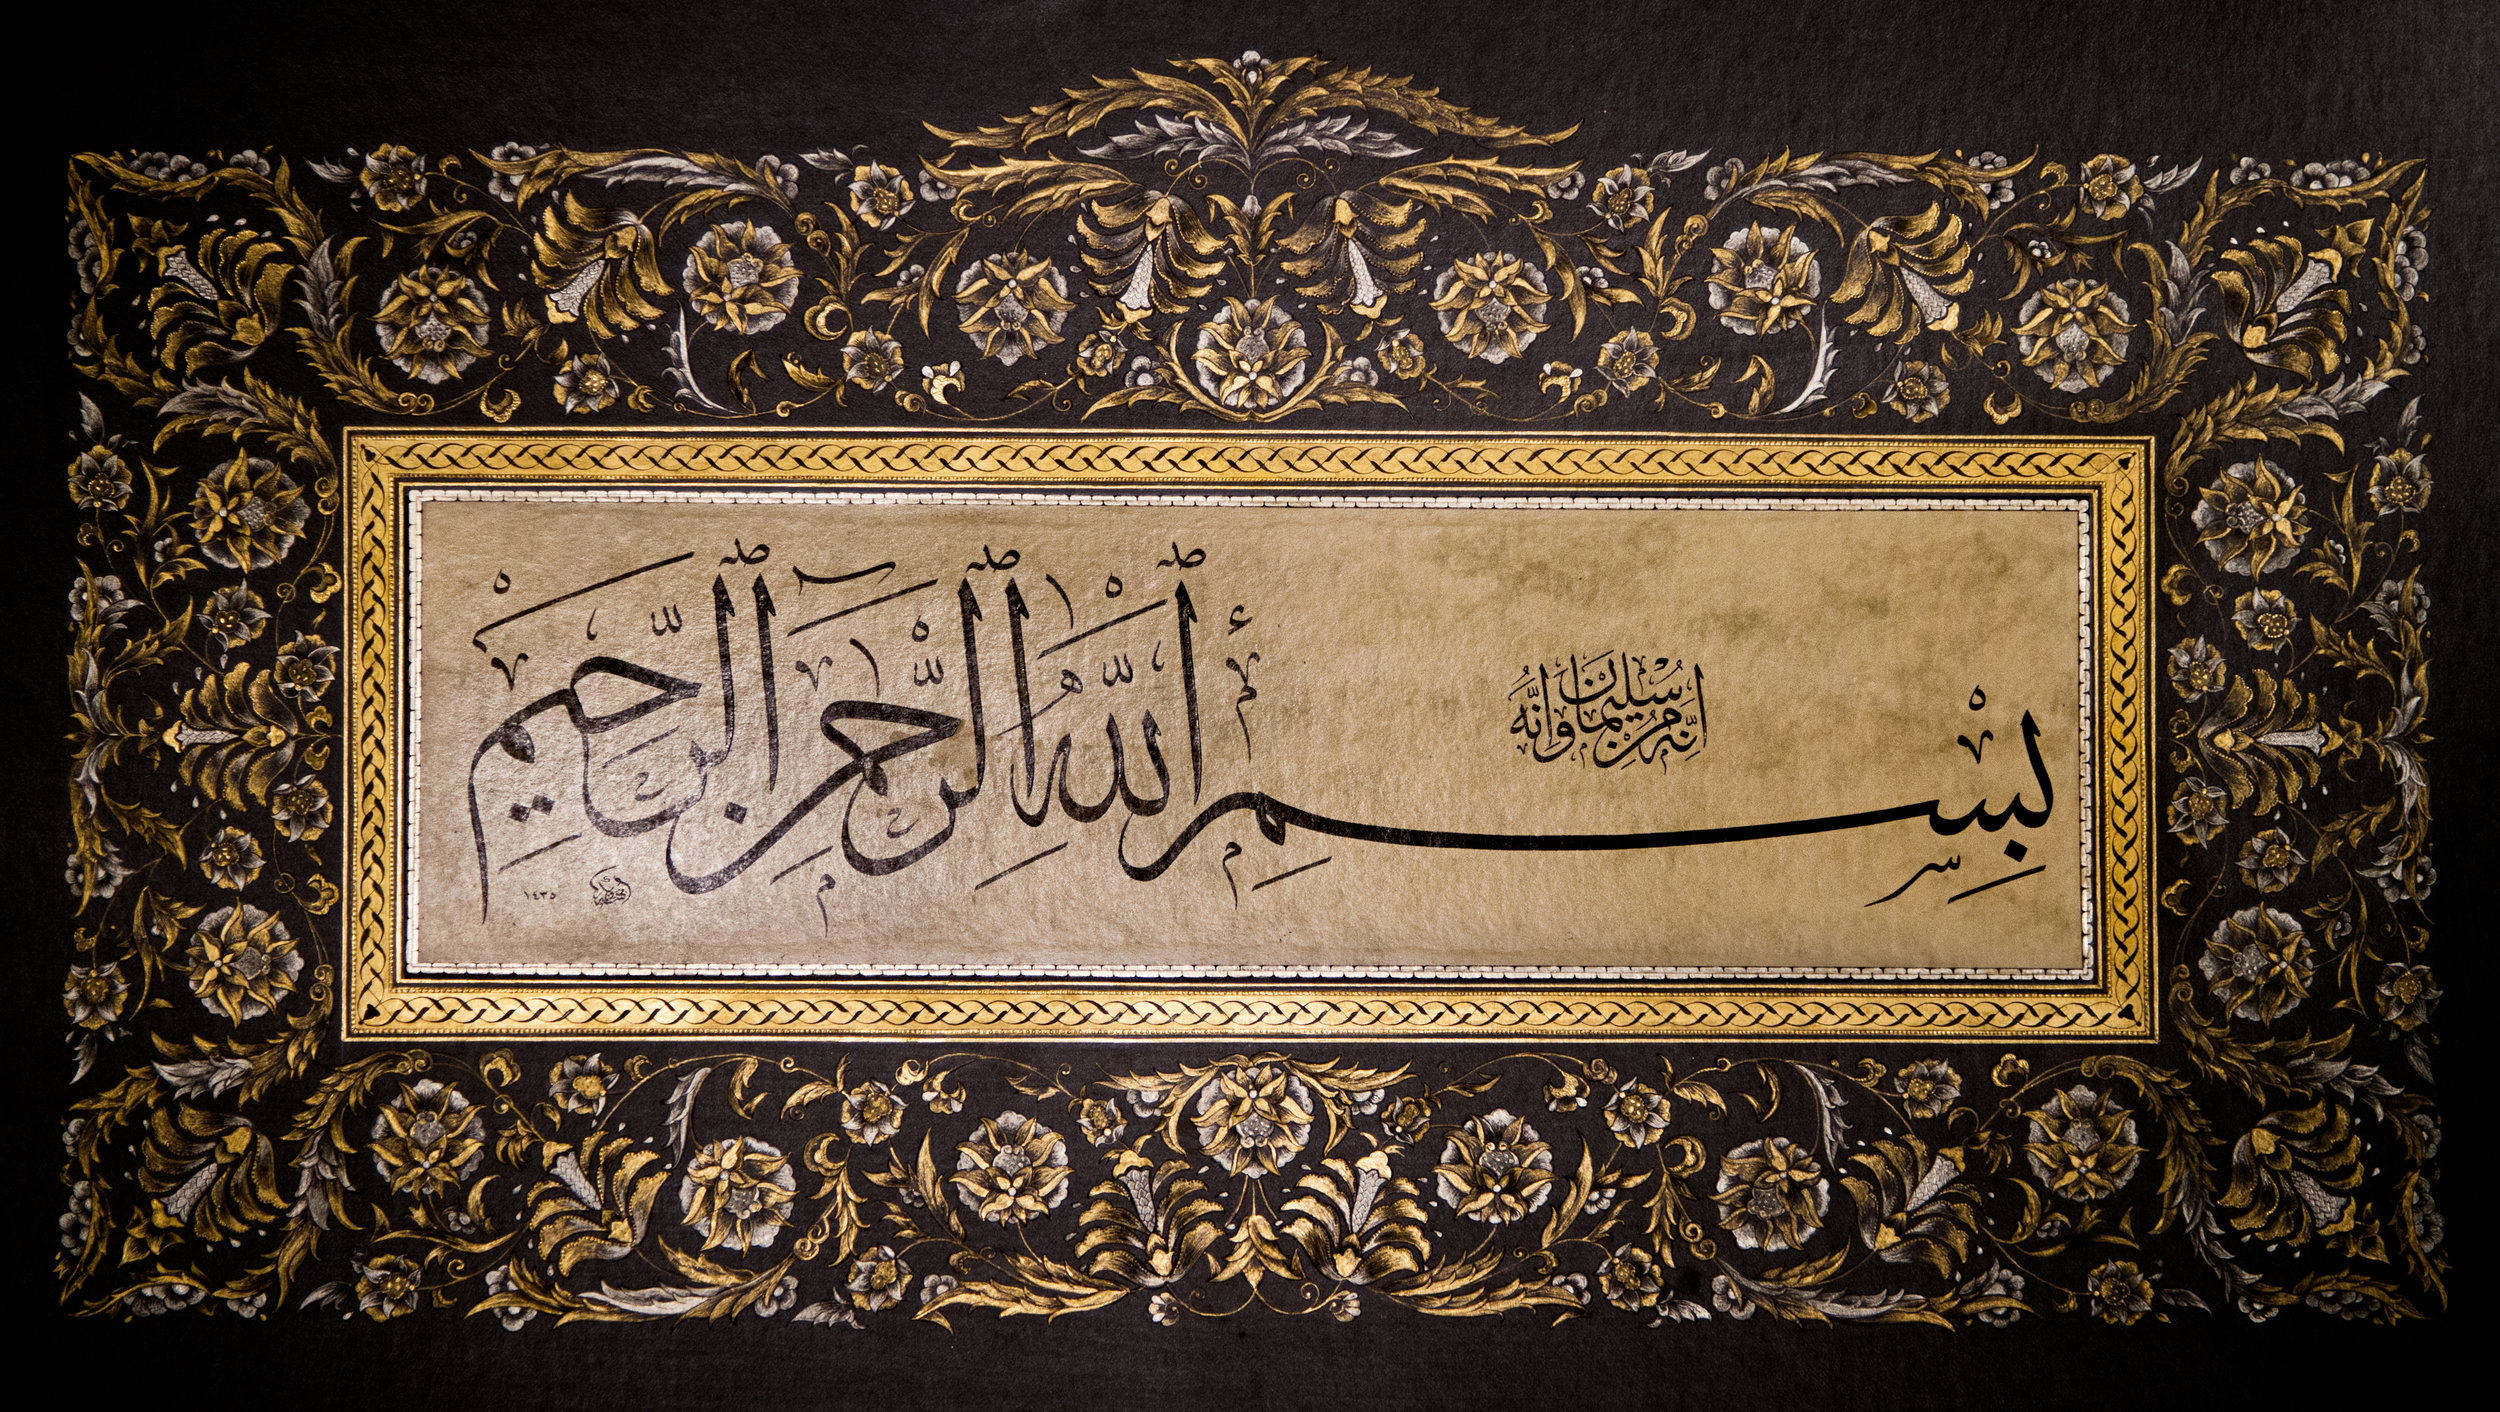 إِنَّهُ مِنْ سُلَيْمَانَ وَإِنَّهُ
بِسْمِ اللَّهِ الرَّحْمَنِ الرَّحِيمِ
١٤٣٥